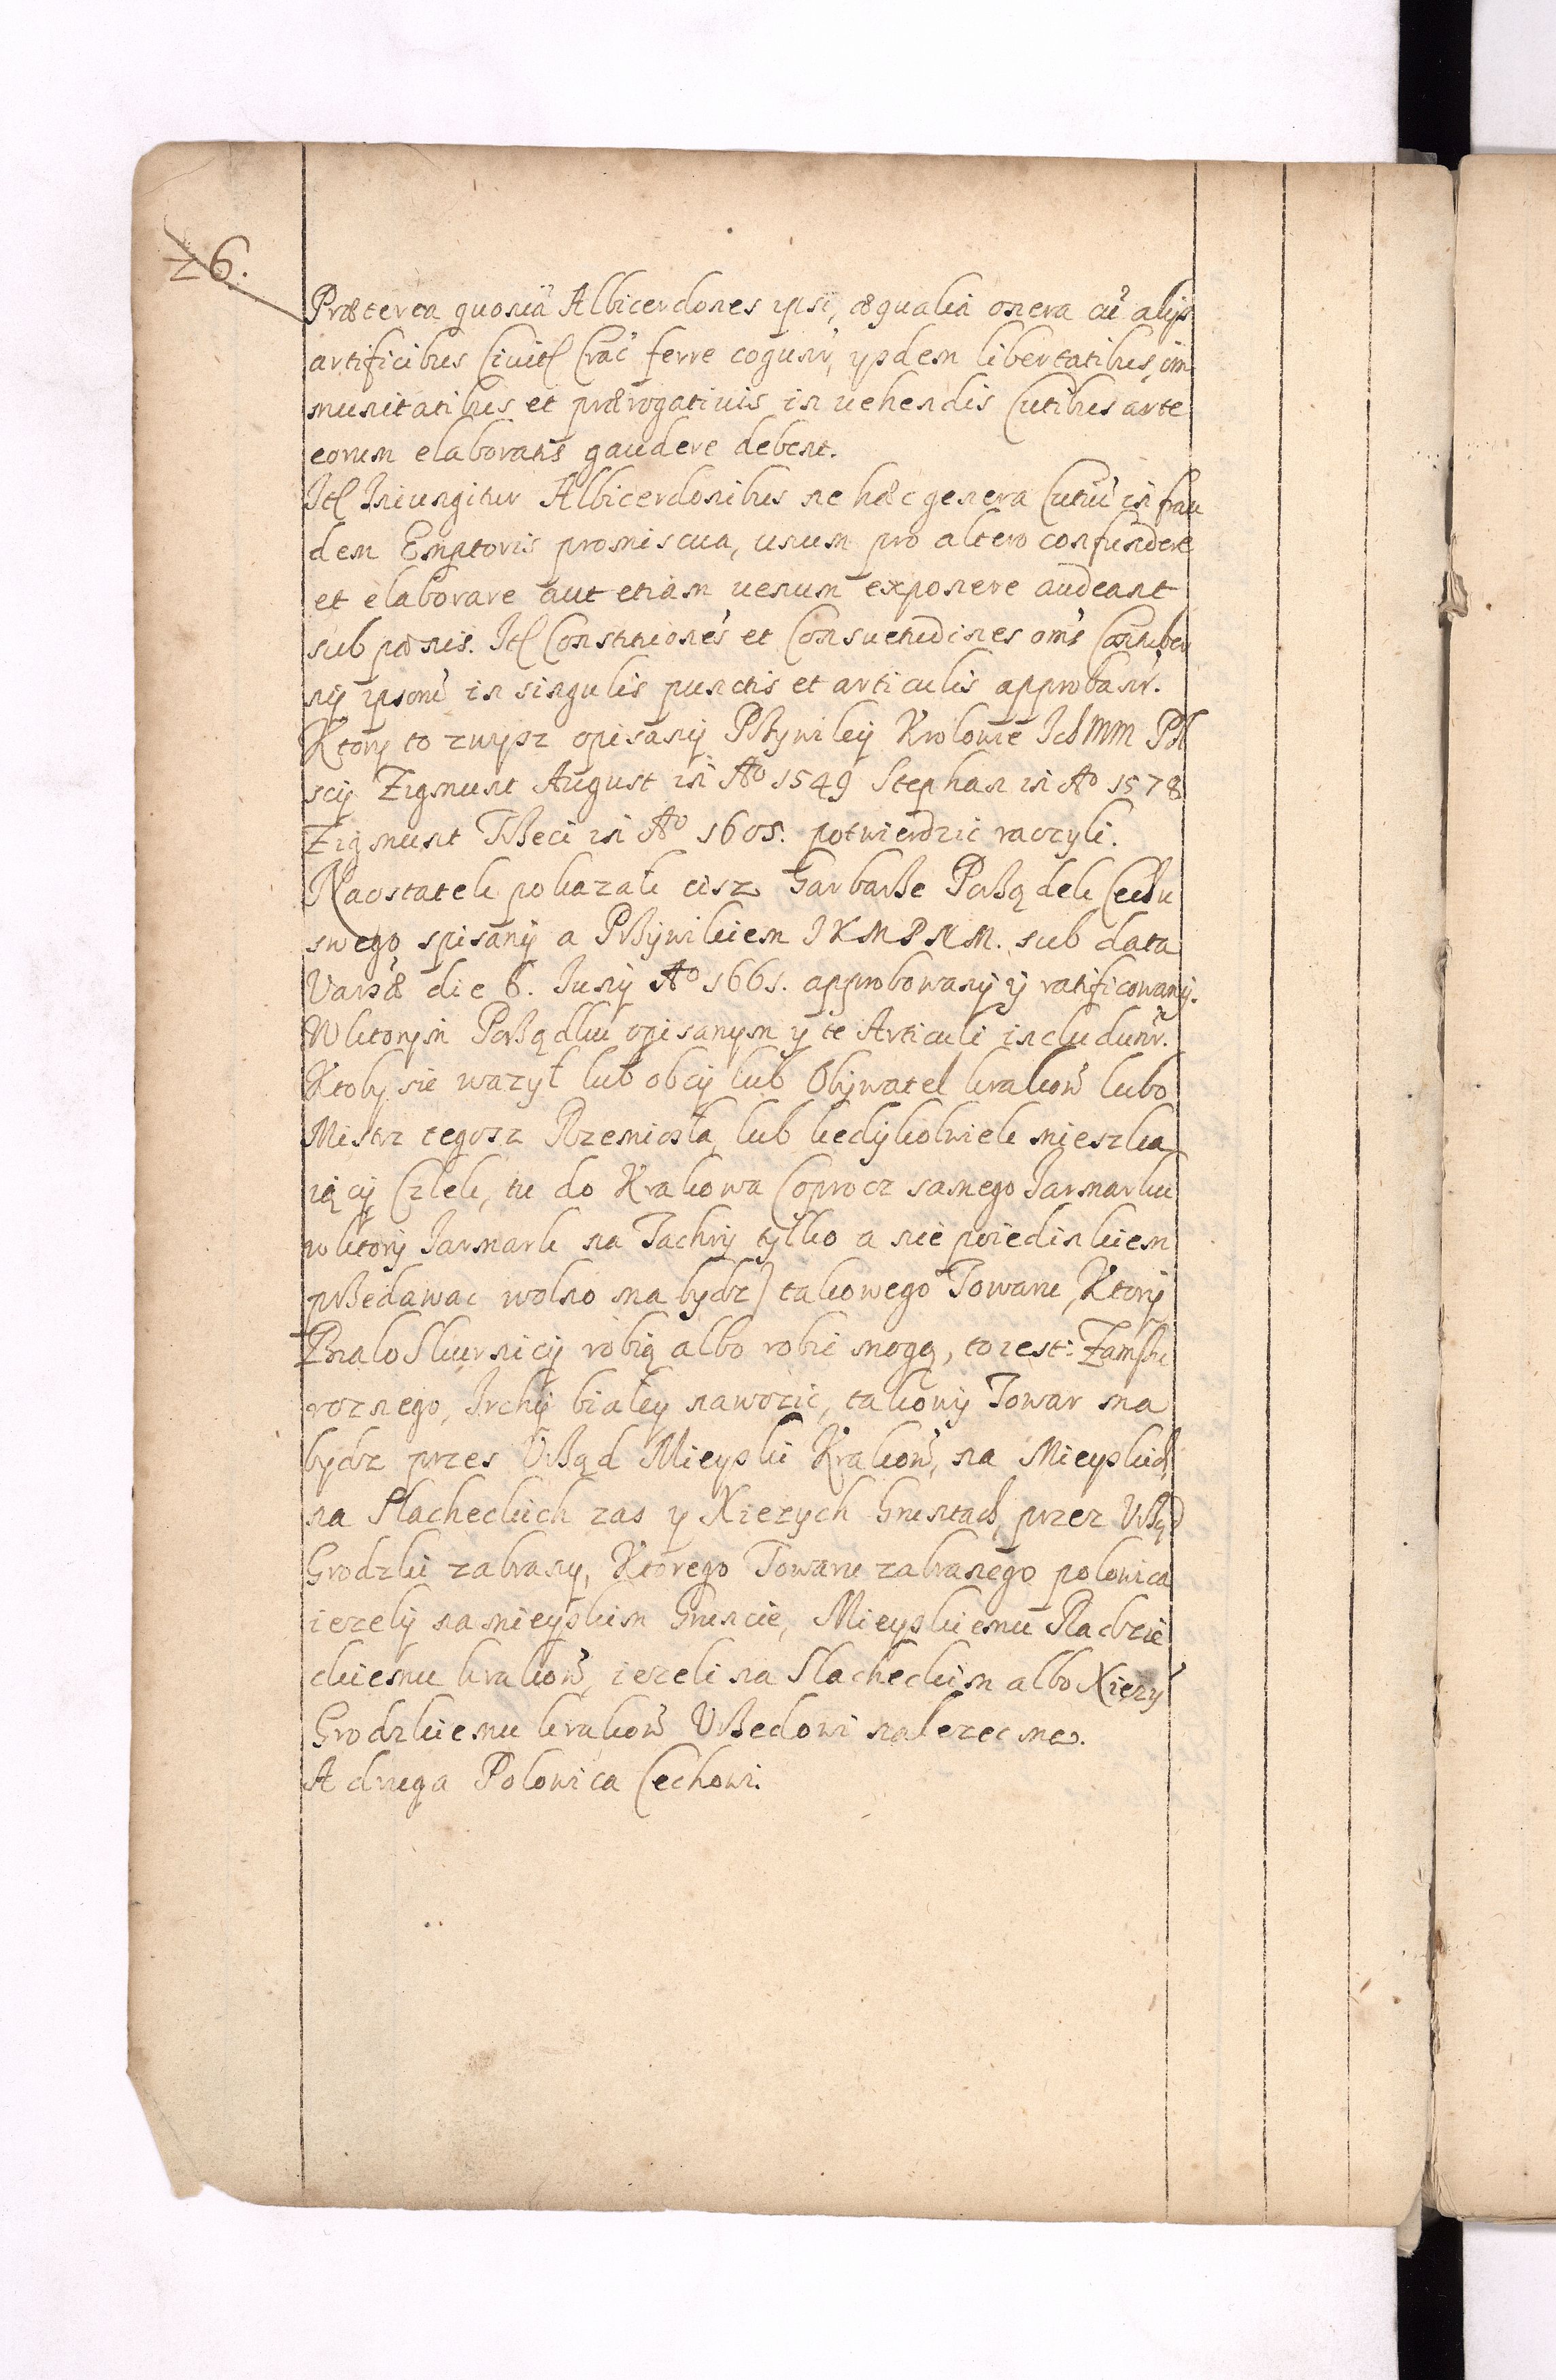 26.
Præterea quoniā Albicerdones ipsi, æqualia onera cū alijs
artificibus Civitٓ Crac̄ ferre cogunr̄, ijsdem libertatibus, im
munitatibus et prærogativis in vehendis Cutibus arte
eorum elaboratis gaudere debent.
Itٓ Iniungitur Albicerdonibus ne hæc genera Cutiū in frau
dem Emptoris promiscua, unum pro altero confundere
et elaborare aut etiam venum exponere audeant
sub pœnis. Itٓ Constitiones et Consuetudines oms̄ Contuber
nij ipsorū in singulis punctis et articulis approbanr̄.
Ktory to zwysz opisany Przywiley Krolowie Ich MM Pol
scy Zigmunt August in Ao 1549 Stephan in Ao 1578
Zigmunt Trzeci in Ao 1605. potwierdzic raczyli.
Naostatek pokazali cisz Garbarze Porządek Cechu
swego spisany a Przywilem JKMPNM. sub data
Varsæ die 6. Iunij Ao 1661. approbowany y ratificowany.
W ktorym Porządku opisanym y te Articuli includunr̄.
Ktoby sie wazył lub obcy lub Obywatel krakow̄ lubo
Mistrz tegosz Rzemiosła lub kedykolwiek mieszka
iący Czlek, tu do Krakowa (oprocz samego Jarmarku
w ktory Jarmark na Tachry tylko a nie poiedinkiem
przedawac wolno ma bydz) takowego Towaru, Ktory
Białoskurnicy robią albo robic mogą, to iest: Zamsku
roznego, Irchy białey nawozic, takowy Towar ma
bydz przes Urząd Mieyski Krakow̄, na Mieyskich,
na Slacheckich zas y Xiezych Gruntach, przez Urząd
Grodzki zabrany, Ktorego Towaru zabranego polowica
iezely na mieyskim Gruncie, Mieyskiemu Radzie
ckiemu krakow̄, iezeli na Slacheckim albo Xiezȳ
Grodzkiemu krakow̄ Urzedowi nalezec ma.
A druga Polowica Cechowi.